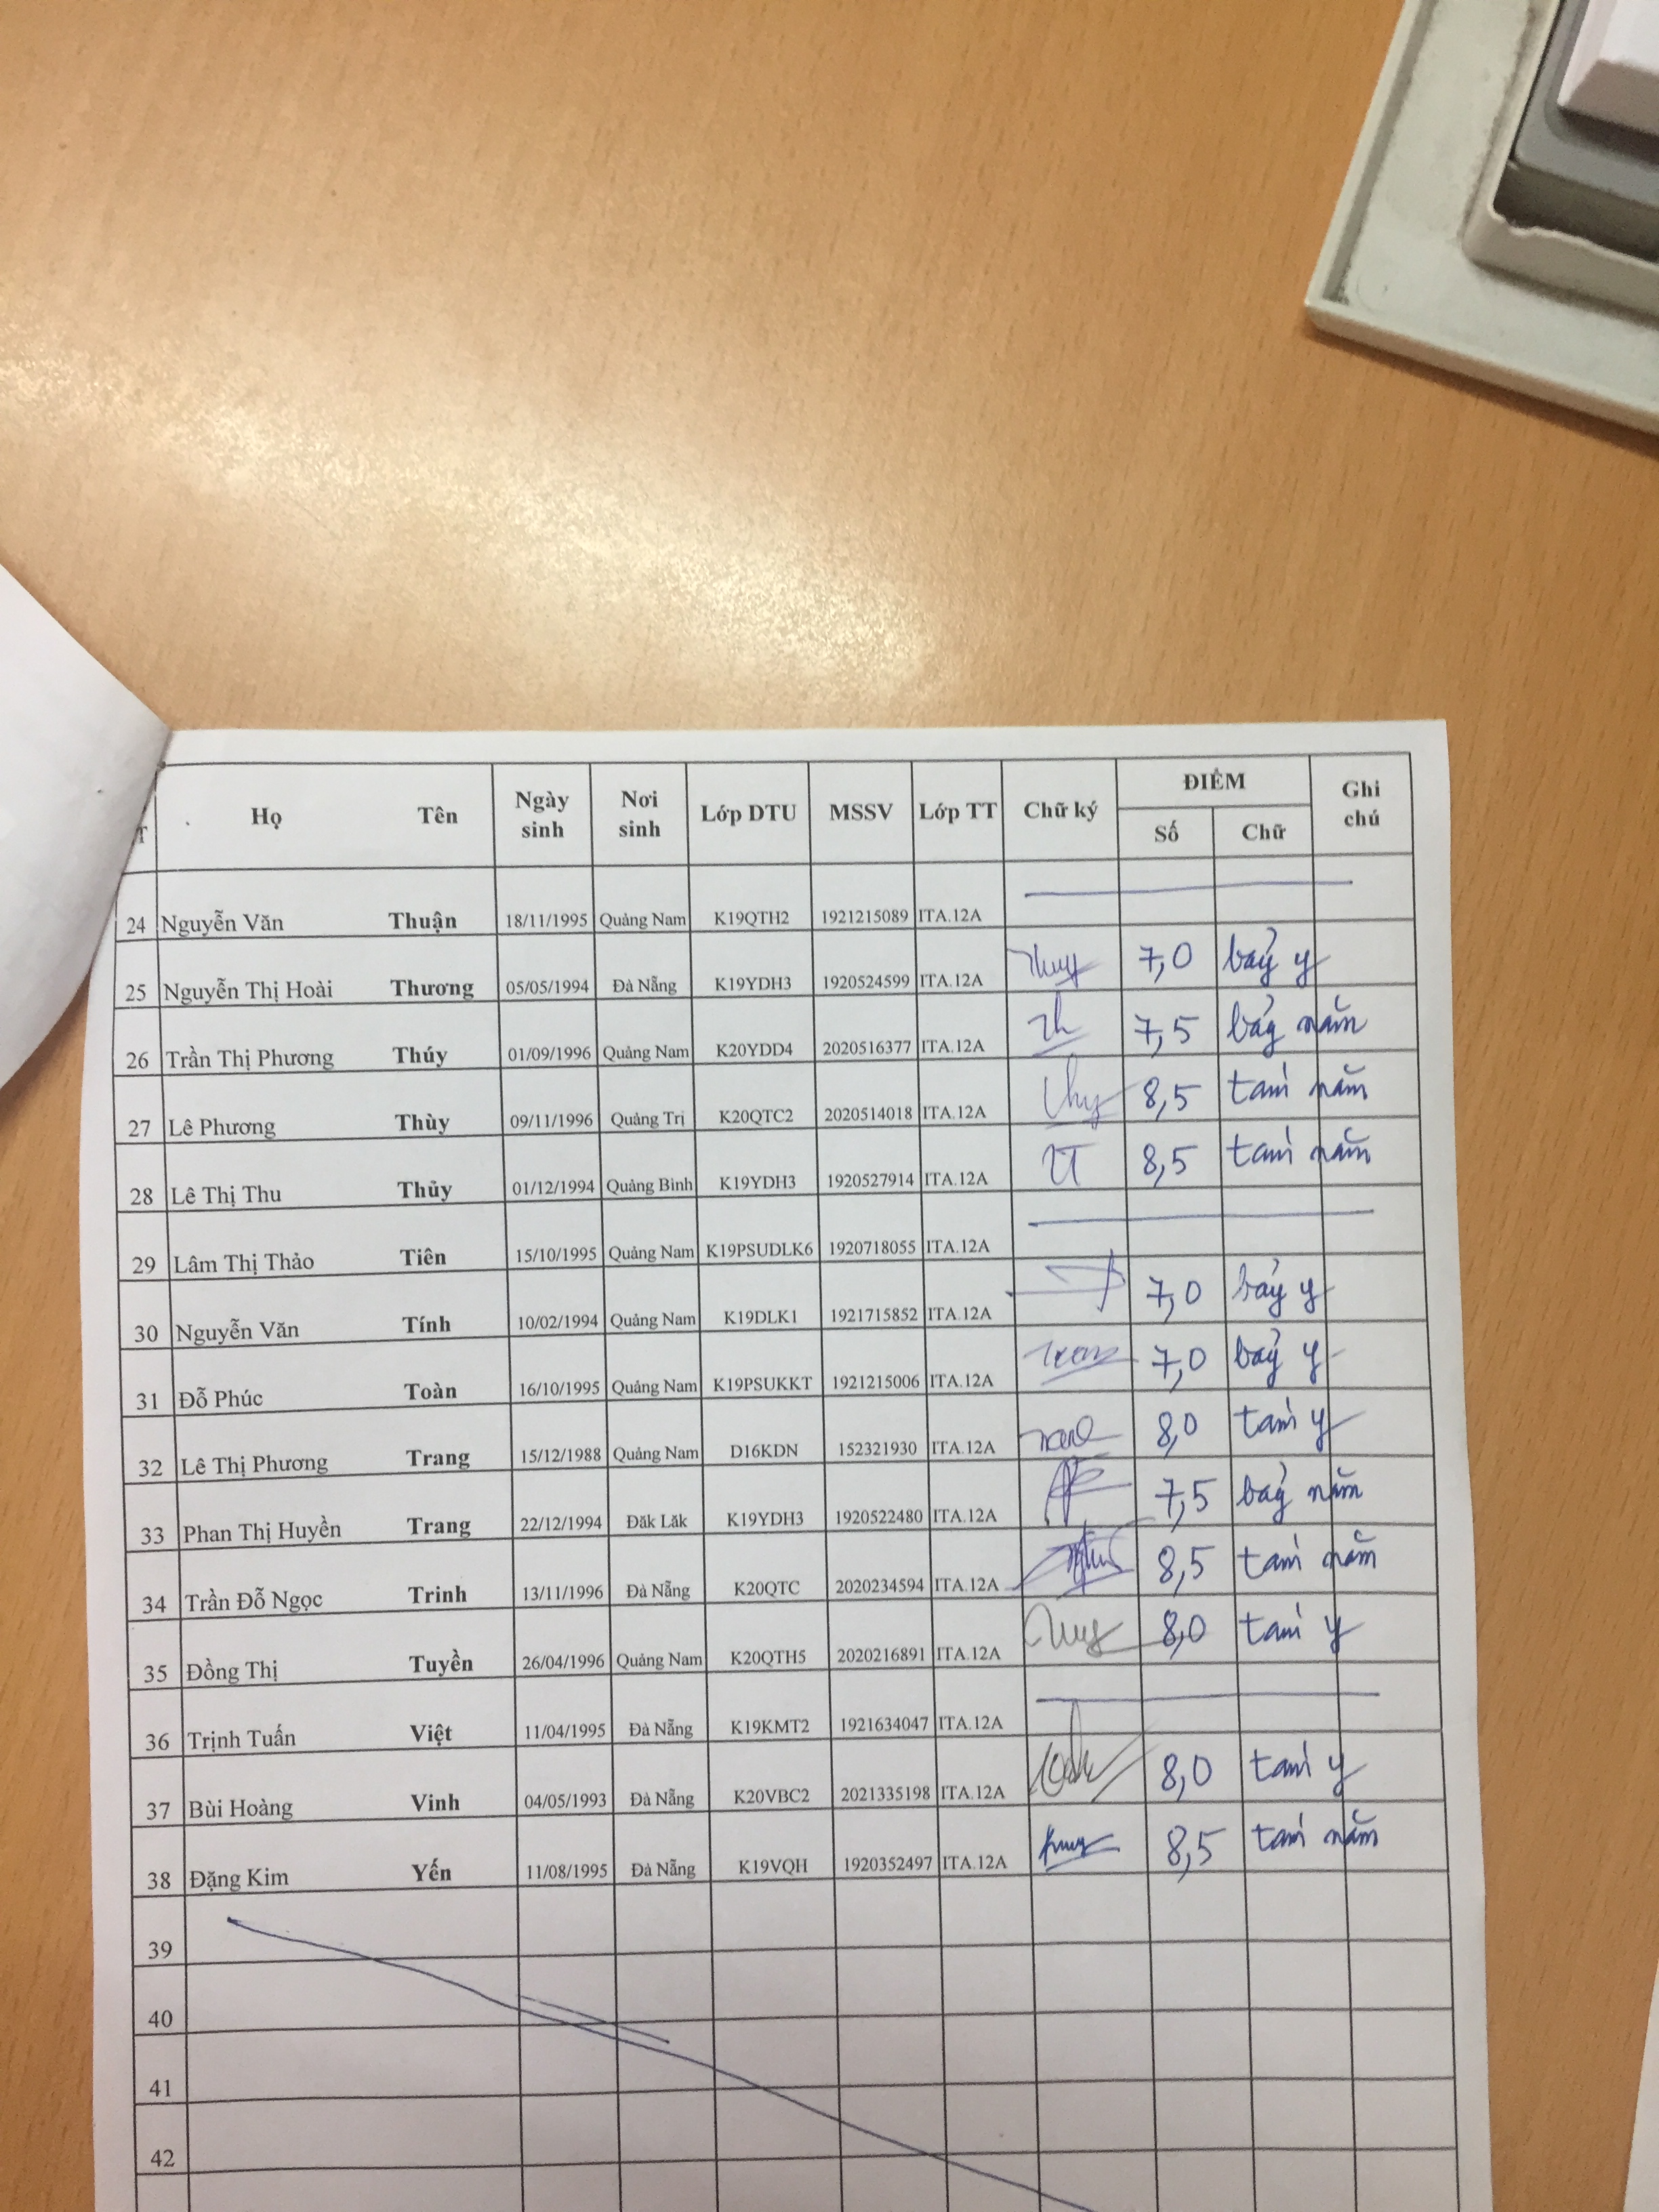 T Họ Tên Ngày sinh Nơi sinh Lớp DTU MSSV Lớp TT Chữ ký ĐIỂM Ghi chú
Số Chữ
24 Nguyễn Văn Thuận 18/11/1995 Quảng Nam K19QTH2 1921215089 ITA.12A
25 Nguyễn Thị Hoài Thương 05/05/1994 Đà Nẵng K19YDH3 1920524599 ITA.12A 7,0 bảy y
26 Trần Thị Phương Thúy 01/09/1996 Quảng Nam K20YDD4 2020516377 ITA.12A 7,5 bảy năm
27 Lê Phương Thùy 09/11/1996 Quảng Trị K20QTC2 2020514018 ITA.12A 8,5 tám năm
28 Lê Thị Thu Thủy 01/12/1994 Quảng Bình K19YDH3 1920527914 ITA.12A 8,5 tám năm
29 Lâm Thị Thảo Tiên 15/10/1995 Quảng Nam K19PSUDLK6 1920718055 ITA.12A
30 Nguyễn Văn Tính 10/02/1994 Quảng Nam K19DLK1 1921715852 ITA.12A 7,0 bảy y
31 Đỗ Phúc Toàn 16/10/1995 Quảng Nam K19PSUKKT 1921215006 ITA.12A 7,0 bảy y
32 Lê Thị Phương Trang 15/12/1988 Quảng Nam D16KDN 152321930 ITA.12A 8,0 tám y
33 Phan Thị Huyền Trang 22/12/1994 Đăk Lăk K19YDH3 1920522480 ITA.12A 7,5 bảy năm
34 Trần Đỗ Ngọc Trinh 13/11/1996 Đà Nẵng K20QTC 2020234594 ITA.12A 8,5 tám năm
35 Đồng Thị Tuyền 26/04/1996 Quảng Nam K20QTH5 2020216891 ITA.12A 8,0 tám y
36 Trịnh Tuấn Việt 11/04/1995 Đà Nẵng K19KMT2 1921634047 ITA.12A
37 Bùi Hoàng Vinh 04/05/1993 Đà Nẵng K20VBC2 2021335198 ITA.12A 8,0 tám y
38 Đặng Kim Yến 11/08/1995 Đà Nẵng K19VQH 1920352497 ITA.12A 8,5 tám năm
39
40
41
42